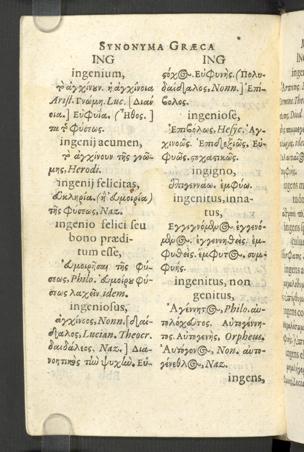 SYNONYMA GRÆCA
ING
ingenium,
τὸ ἀγχίνουν. ἡ ἀγχίνοια
Arist. Γνώμη. Luc. [Διάν
οια.] Εὐφυΐα. (Ἦθος.]
τὰ τ̃ φύσεως.
ingenij acumen,
τὸ ἀγχίνουν τῆς γνώ-
μης. Herodi.
ingenij felicitas,
(ἡ εὐμοιρία)
τῆς φύσεως, Naz.
ingenio felici seu
bono prædi-
tum esse,
εὐμοιρῆσαι τῆς φύ-
σεως. Philo. εὐμοίρου φύ-
σεως λαχεῖν. idem.
ingeniosus,
ἀγχίνοος, Nonn. [δ]αί-
δαλος, Lucian. Theocr.
δαιδάλεος. Naz.] Δια-
νοητικὸς τὴν ψυχὴν. Εὔ-
ING
Εὐφυής. (Πολυ-
δαίδαλος, Nonn.] Ἐπί-
βολος.
ingeniose,
Ἐπιβόλως. Hesyc. Ἀγ-
χινοῶς. Ἐπιδεξίως. Εὐ-
φυῶς. στοχαστικῶς.
ingigno,
ἐμφύω.
ingenitus, inna-
tus,
Ἐγγιγνόμενος. ἐγγενό-
μενος. ἐγγεννηθείς. ἐμ-
φυθείς. ἔμφυτος. συμ-
φυής.
ingenitus, non
genitus,
Ἀγέννητος, Philo. αὐ-
τολόχευτος. Αὐτογέννη-
τος. Αὐτογενής, Orpheus.
Αὐτόγονος, Non. αὐτο-
γένεθλος, Naz.
ingens,